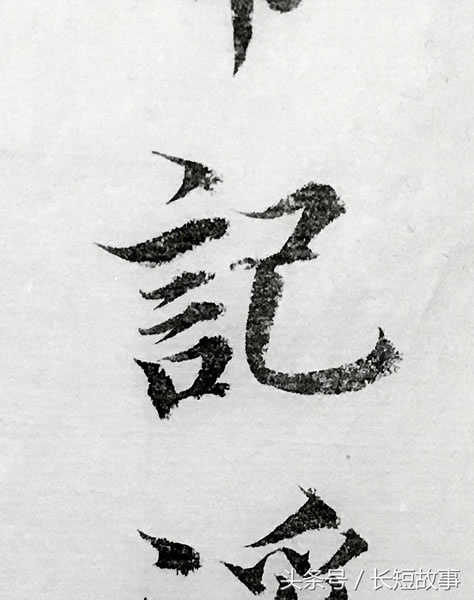 記
头条号 / 长短故事